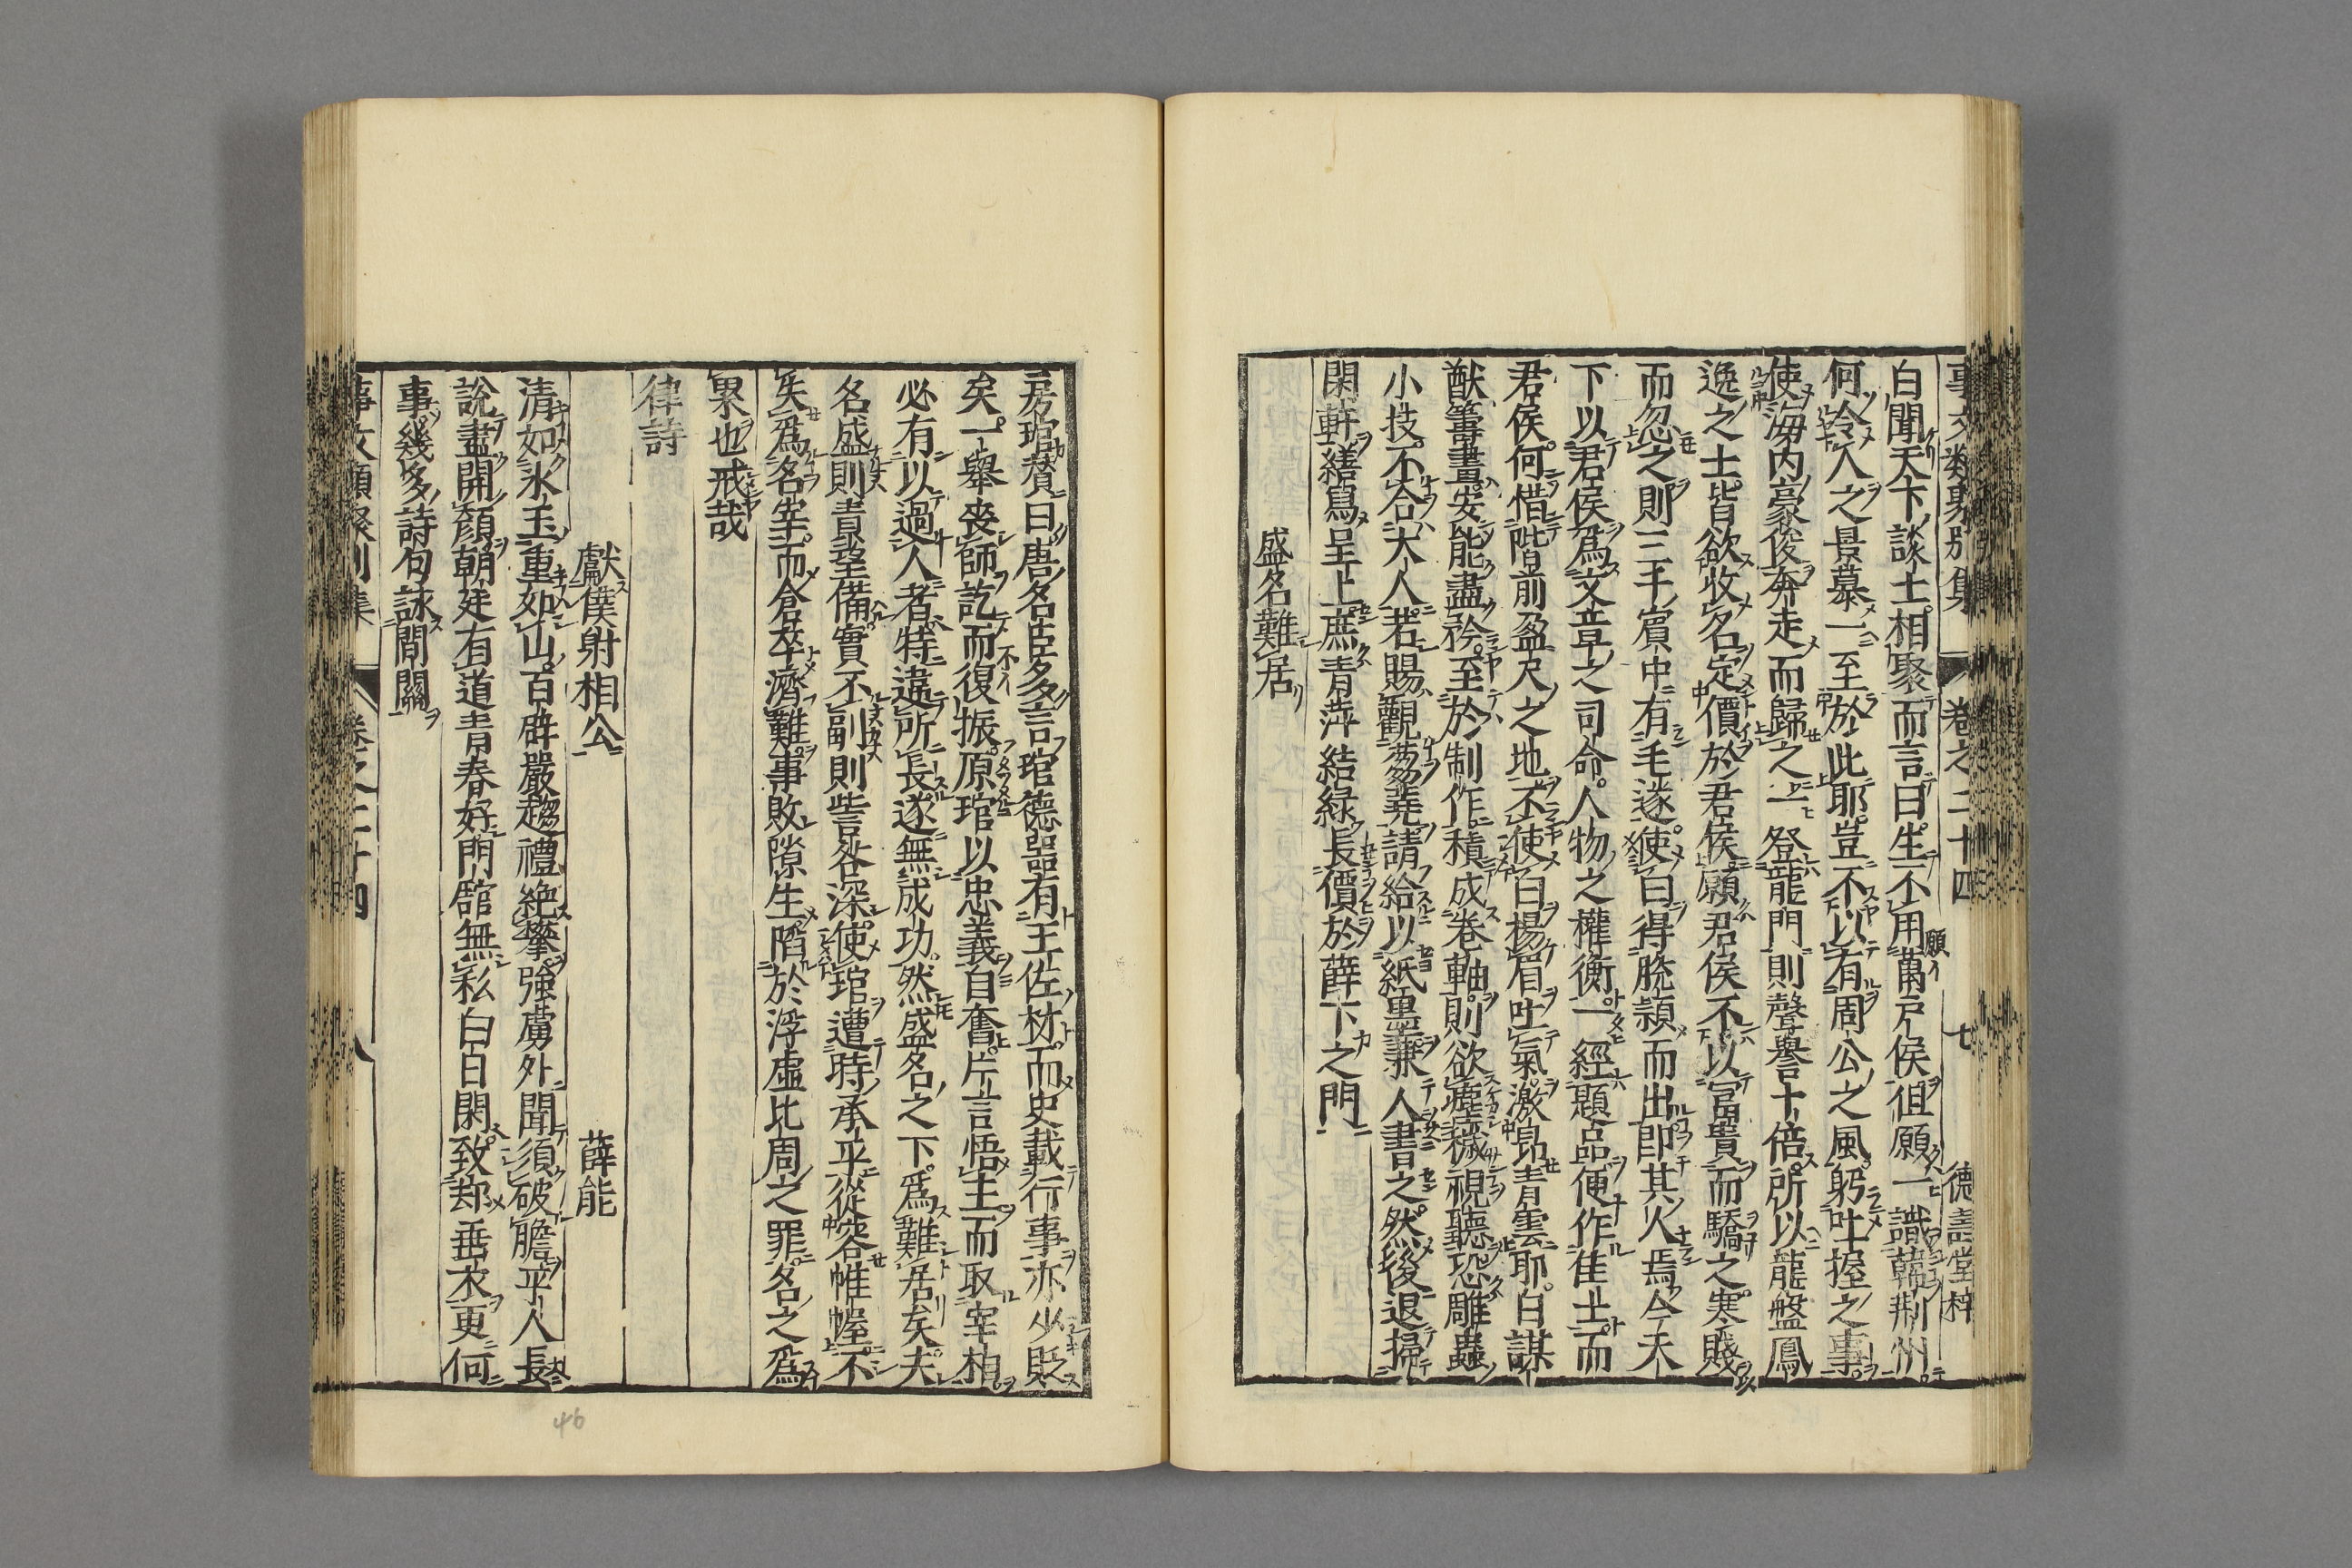 事文類聚別集 卷之二十四 七 德壽堂梓
白聞天下談士相聚而言曰生不用萬戶侯但願一識韓荆州
願イ
何令人之景慕一至於此耶豈不以有周公之風躬吐握之事
使海內豪俊奔走而歸之一登龍門則聲譽十倍所以龍盤鳳
逸之士皆欲收名定價於君侯願君侯不以冨貴而驕之寒賤
而忽之則三千賓中有毛遂使白得脫頴而出即其人焉今天
下以君侯爲文章之司命人物之權衡一經題品便作佳士而
君侯何惜階前盈尺之地不使白揚眉吐氣激昂青雲耶白謀
猷籌畫安能盡矜至於制作積成卷軸則欲塵穢視聽恐雕蟲
小技不合大人若賜觀芻蕘請給以紙墨兼人書之然後退掃
閑軒繕寫呈上庶青萍結綠長價於薛卞之門
盛名難居
房琯賛曰唐名臣多言琯德器有王佐材而史載行事亦少貶
矣一舉丧師訖而復振原琯以忠義自奮片言悟主而取宰相
必有以過人者特違所長遂無成功然盛名之下爲難居矣夫
名盛則責望備實不副則訾咎深使琯遭時承平從容帷幄不
矣爲名宰而倉卒濟難事敗隙生陷於浮虛比周之罪名之爲
累也戒哉
律詩
獻僕射相公 薛能
清如氷玉重如山百辟嚴趨禮絶攀強虜外聞須破膽平人長
說盡開顏朝廷有道青春好門館無私白日閑致却垂衣更何
事幾多詩句詠間關
事文類聚別集 卷之二十四 八
46